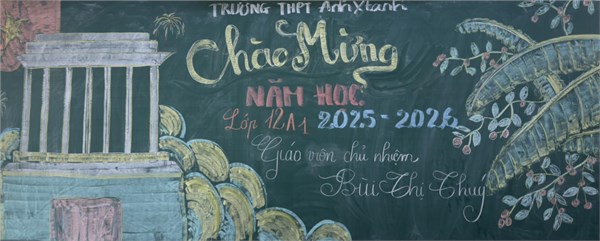 TRƯỜNG THPT AnhXtanh
Chào Mừng
NĂM HỌC
Lớp 12A1 2025-2026
Giáo viên chủ nhiệm
Bùi Thị Thuý